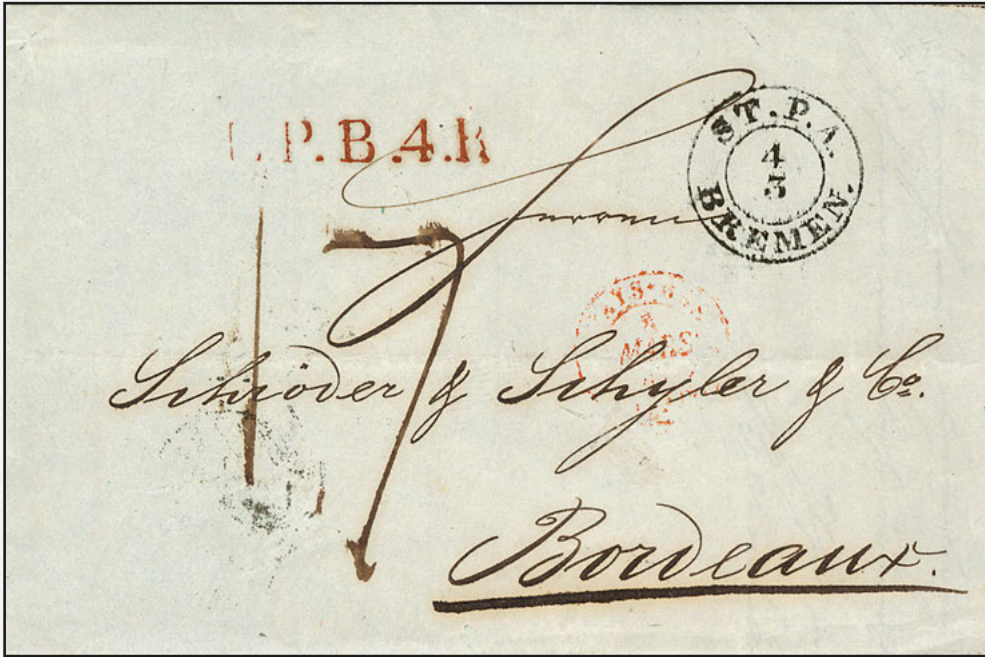 P.B.4.R
ST.P.A.
4
3
BREMEN.
17
MARS
Schröder & Schyler & Co.
Bordeaux.